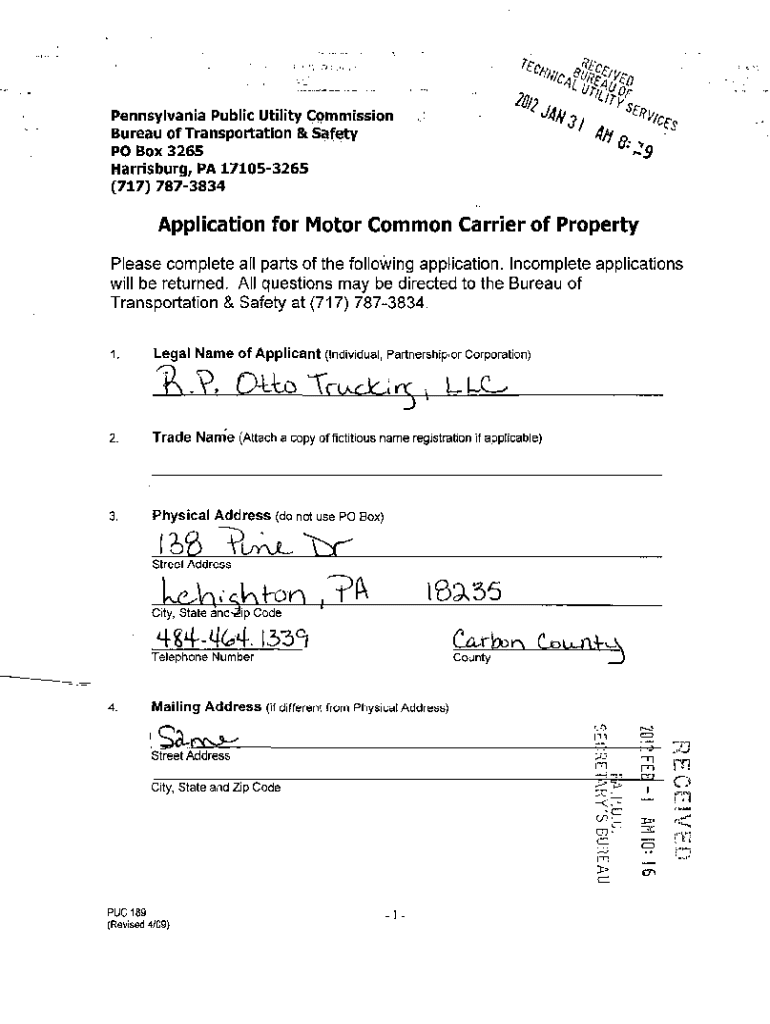 RECEIVED
BUREAU OF
TECHNICAL UTILITY SERVICES
2012 JAN 31 AM 8:
Pennsylvania Public Utility Commission
Bureau of Transportation & Safety
PO Box 3265
Harrisburg, PA 17105-3265
(717) 787-3834
Application for Motor Common Carrier of Property
Please complete all parts of the following application. Incomplete applications
will be returned. All questions may be directed to the Bureau of
Transportation & Safety at (717) 787-3834.
1. Legal Name of Applicant (Individual, Partnership or Corporation)
R.P. Otto Trucking, LLC
2. Trade Name (Attach a copy of fictitious name registration if applicable)
3. Physical Address (do not use PO Box)
138 Pine Dr
Street Address
Lehighton, PA 18235
City, State and Zip Code
484-464.1339 Carbon County
Telephone Number County
4. Mailing Address (if different from Physical Address)
Same
Street Address
City, State and Zip Code
RECEIVED
2012 FEB -1 AM 10: 16
PA. P.U.C.
SECRETARY'S BUREAU
PUC 189
(Revised 4/09)
- 1 -